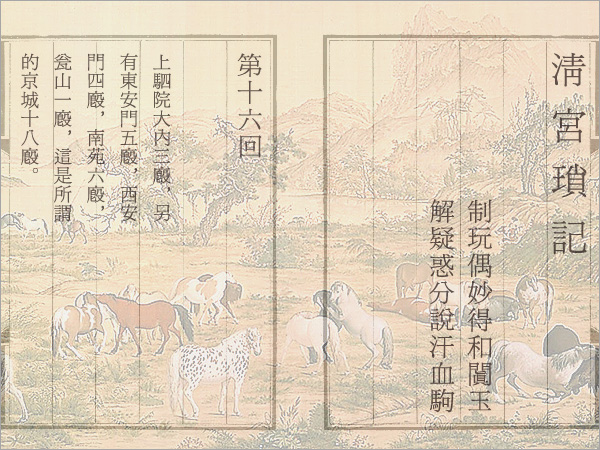 清宮瑣記
制玩偶妙得和闐玉
解疑惑分說汗血駒
第十六回
上駟院大內三廄，另
有東安門五廄，西安
門四廄，南苑六廄，
瓮山一廄，這是所謂
的京城十八廄。